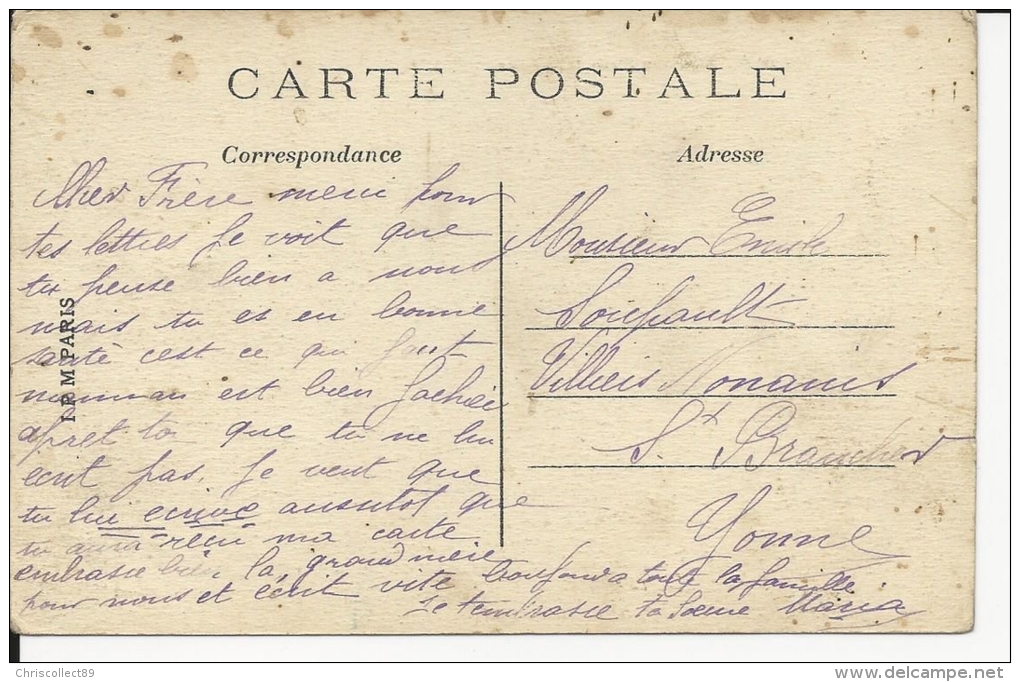 CARTE POSTALE
Correspondance
Adresse
Cher Frère merci pour
tes lettres je voit que
tu pense bien a nous
mais tu es en bonne
santé cest ce qui faut
maman est bien fachée
apret toi que tu ne lui
ecrit pas. Je veut que
tu lui ecrive aussitot que
tu aura reçu ma carte
embrasse bien la grand mere
pour nous et écrit vite bonjour a toute la famille
Je tembrasse ta Sœur Maria
Monsieur Emile
Soupault
Villiers Nonains
St Brancher
Yonne
I P M PARIS
Chriscollect89
www.delcampe.net